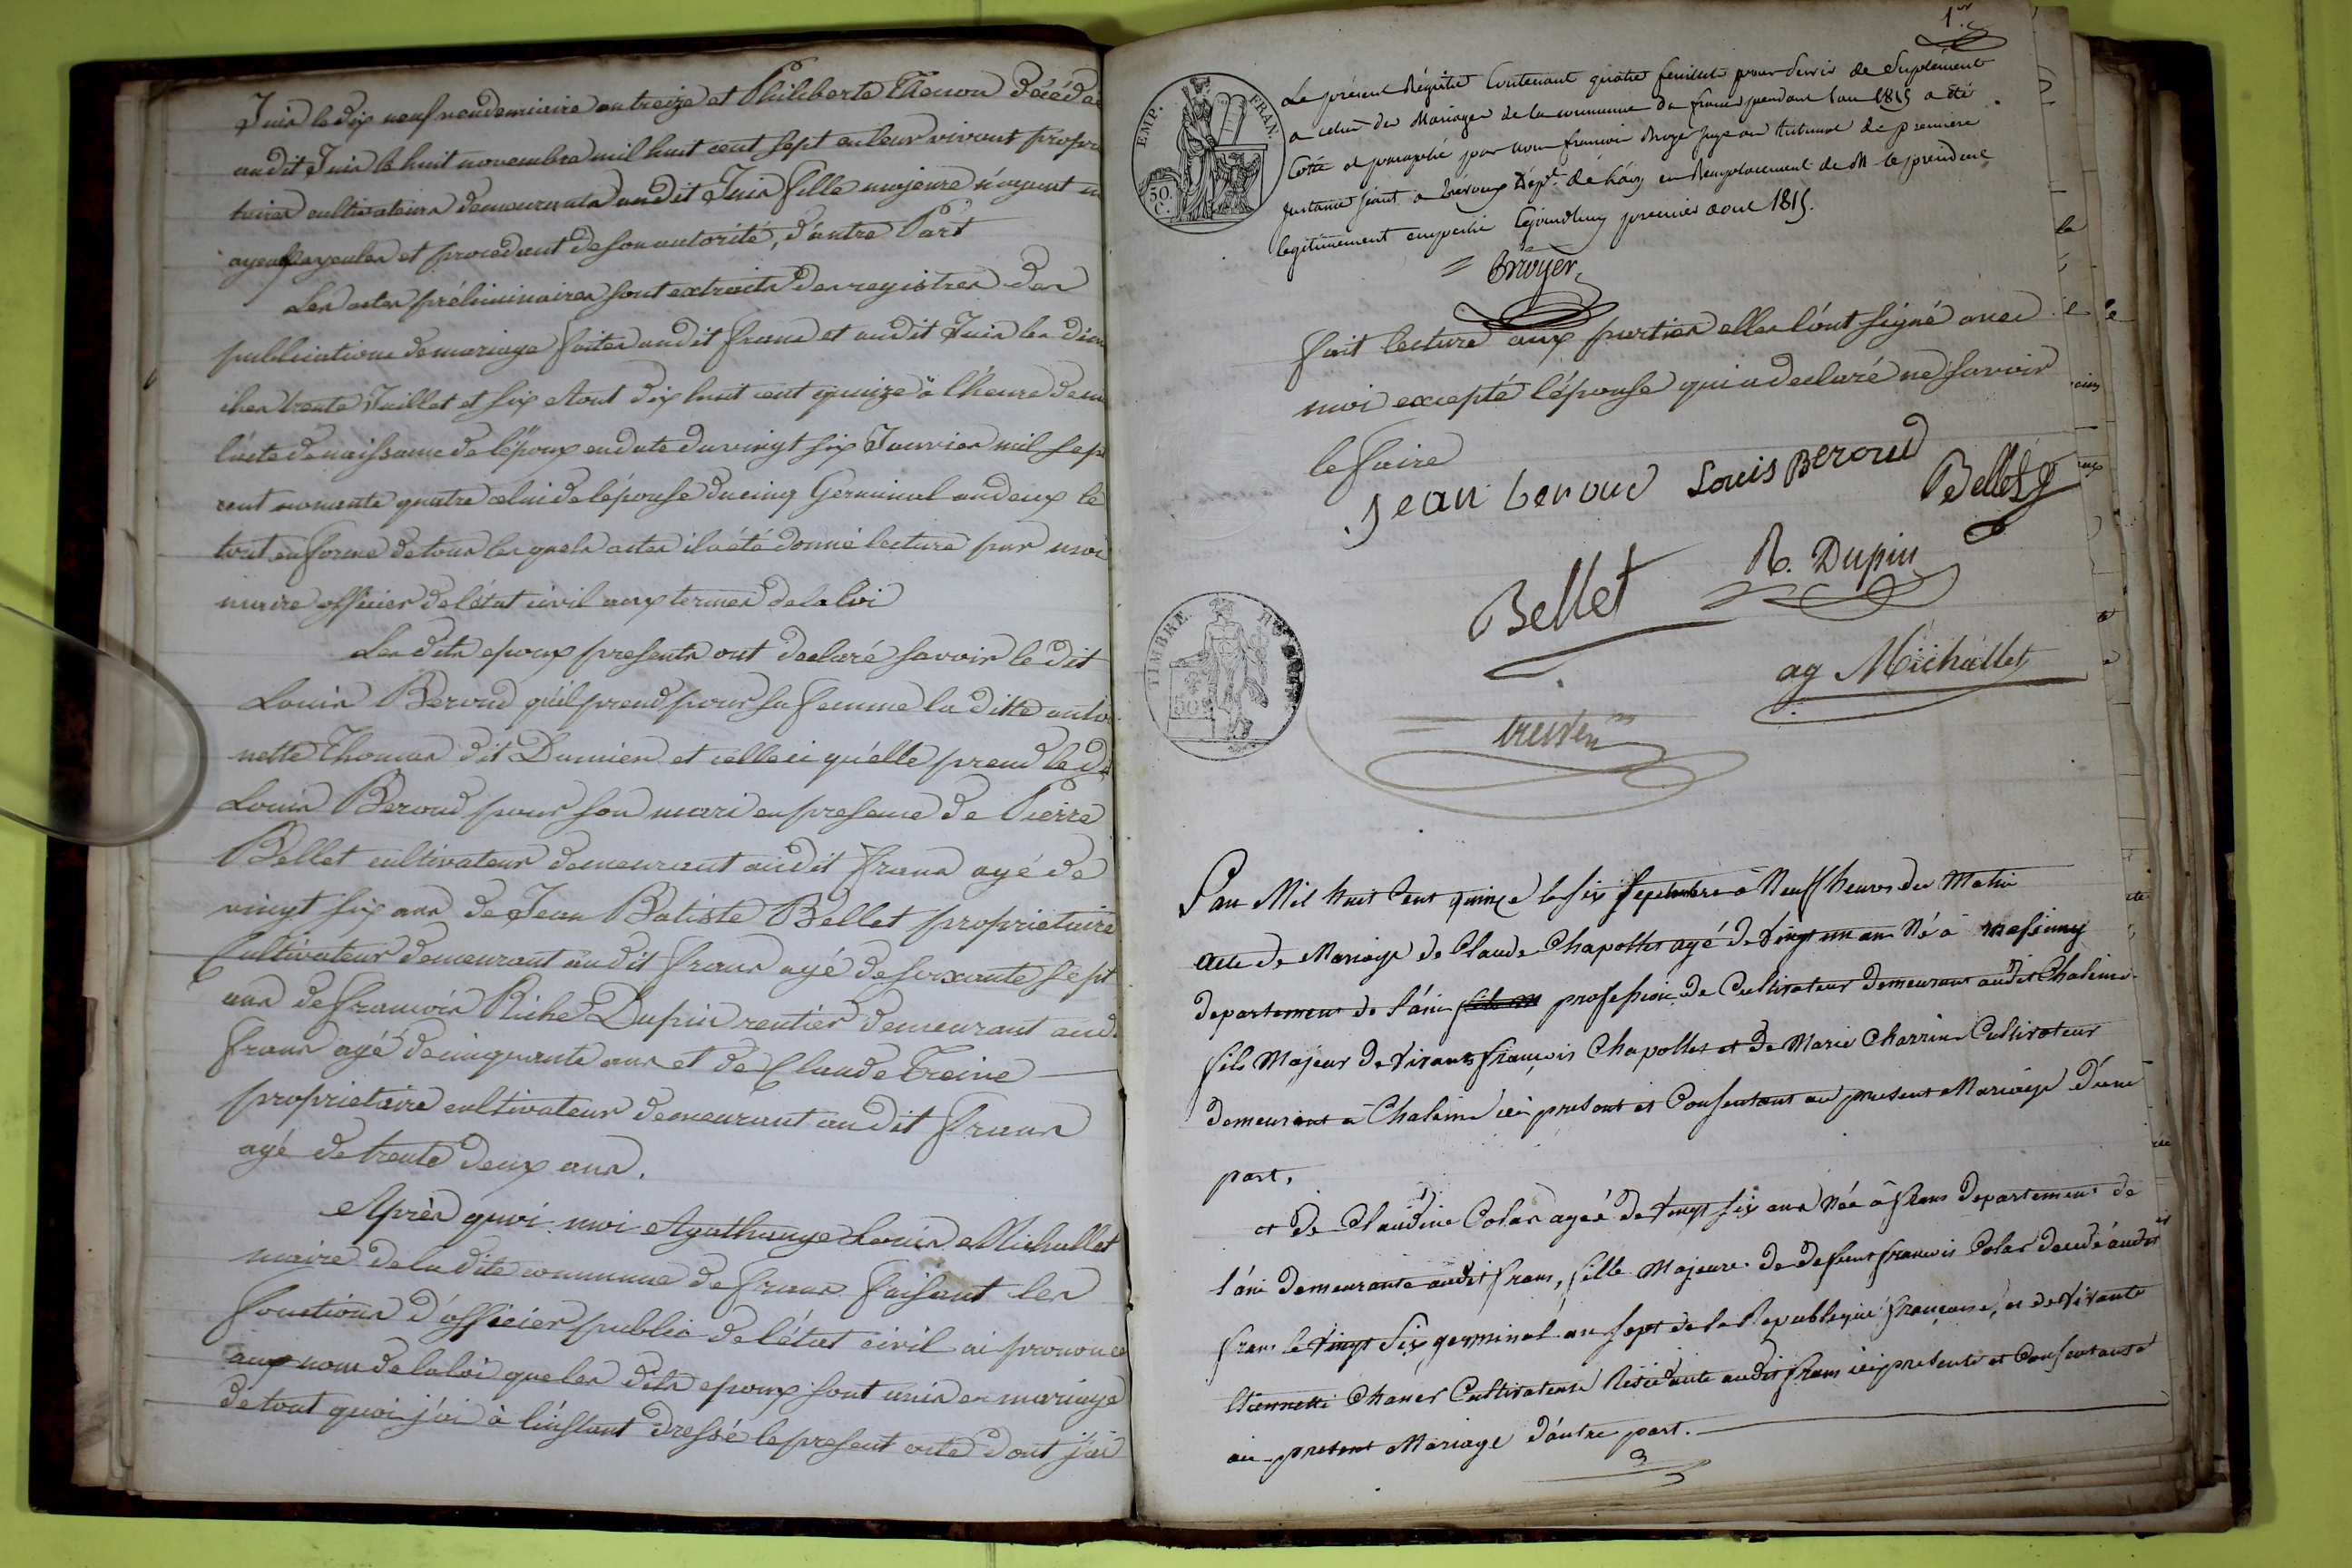 Juis le dix neuf vendemiaire an treize et Philiberte Thenon décédée
audit Juis le huit novembre mil huit cent sept en leur vivant proprie
taires cultivateurs demeurants audit Juis fille majeure n'ayant ni
ayeul ayeules et procedant de son autorité, d'autre Part
Les actes préliminaires sont extraits des registres des
publications de mariage faites audit frans et audit Juis les diman
ches trente Juillet et six Aout dix huit cent quinze à l'heure de
l'acte de naissance de l'époux en date du vingt six Janvier mil sept
cent nonante quatre celui de l'épouse du cinq Germinal an deux le
tout en forme de tous les quels actes il a été donné lecture par moi
maire officier de l'état civil aux termes de la loi
Les dits epoux presents ont declaré savoir le dit
Louis Beroud qu'il prend pour sa femme la ditte antoi
nette Thomas dit Damien et celle ci qu'elle prend le dit
Louis Beroud pour son mari en presence de Pierre
Bellet cultivateur demeurant audit frans agé de
vingt six ans de Jean Batiste Bellet proprietaire
Cultivateur demeurant audit frans agé de soixante sept
ans de françois Riche Dupin rentier demeurant aud.
frans agé de cinquante ans et de Claude Treive
proprietaire cultivateur demeurant audit frans
agé de trente deux ans.
Après quoi moi Agathange Louis Michallet
maire de la dite commune de frans faisant les
fonctions d'officier public de l'état civil ai prononcé
aux nom de la loi que les dits epoux sont unis en mariage
de tout quoi j'ai à l'instant dressé le present acte dont j'ai
1er
EMP. FRAN.
50. C.
Le présent Régistre Contenant quatre feuillets pour servir de Suplément
a celui des Mariages de la commune de frans pendant l'an 1815 a été
Cotté et paraphé par nous françois Broyer juge au tribunal de premiere
Instance séant a trévoux Dépt. de L'ain en Remplacement de M le président
legitimement empeché Cejourdhuy premier aout 1815.
Broyer
fait lecture aux parties elles l'ont signé avec
moi excepté l'épouse qui a declaré ne savoir
le faire
Jean beroud Louis Beroud Bellet
Bellet R. Dupin
TIMBRE
50
ag Michallet
L'an Mil huit Cent quinze le six septembre à Neuf heures du Matin
acte de Mariage de Claude Chapollet agé de Vingt un ans Né à Messimy
departement de l'ain profession de Cultivateur demeurant audit Chaleins
fils Majeur de Vivants françois Chapollet et de Marie Charrin Cultivateur
demeurant à Chaleins ici present et Consentant au present Mariage d'une
part,
et de Claudine Colas ageé de Vingt six ans Née à frans departement de
l'ain demeurante audit frans, fille Majeure de deffunt francois Colas decedé audit
frans le Vingt Six germinal an sept de la Republique française, et de Vivante
Etiennette Chanel Cultivateuse Residante audit frans ici presente et Consentante
au present Mariage d'autre part.